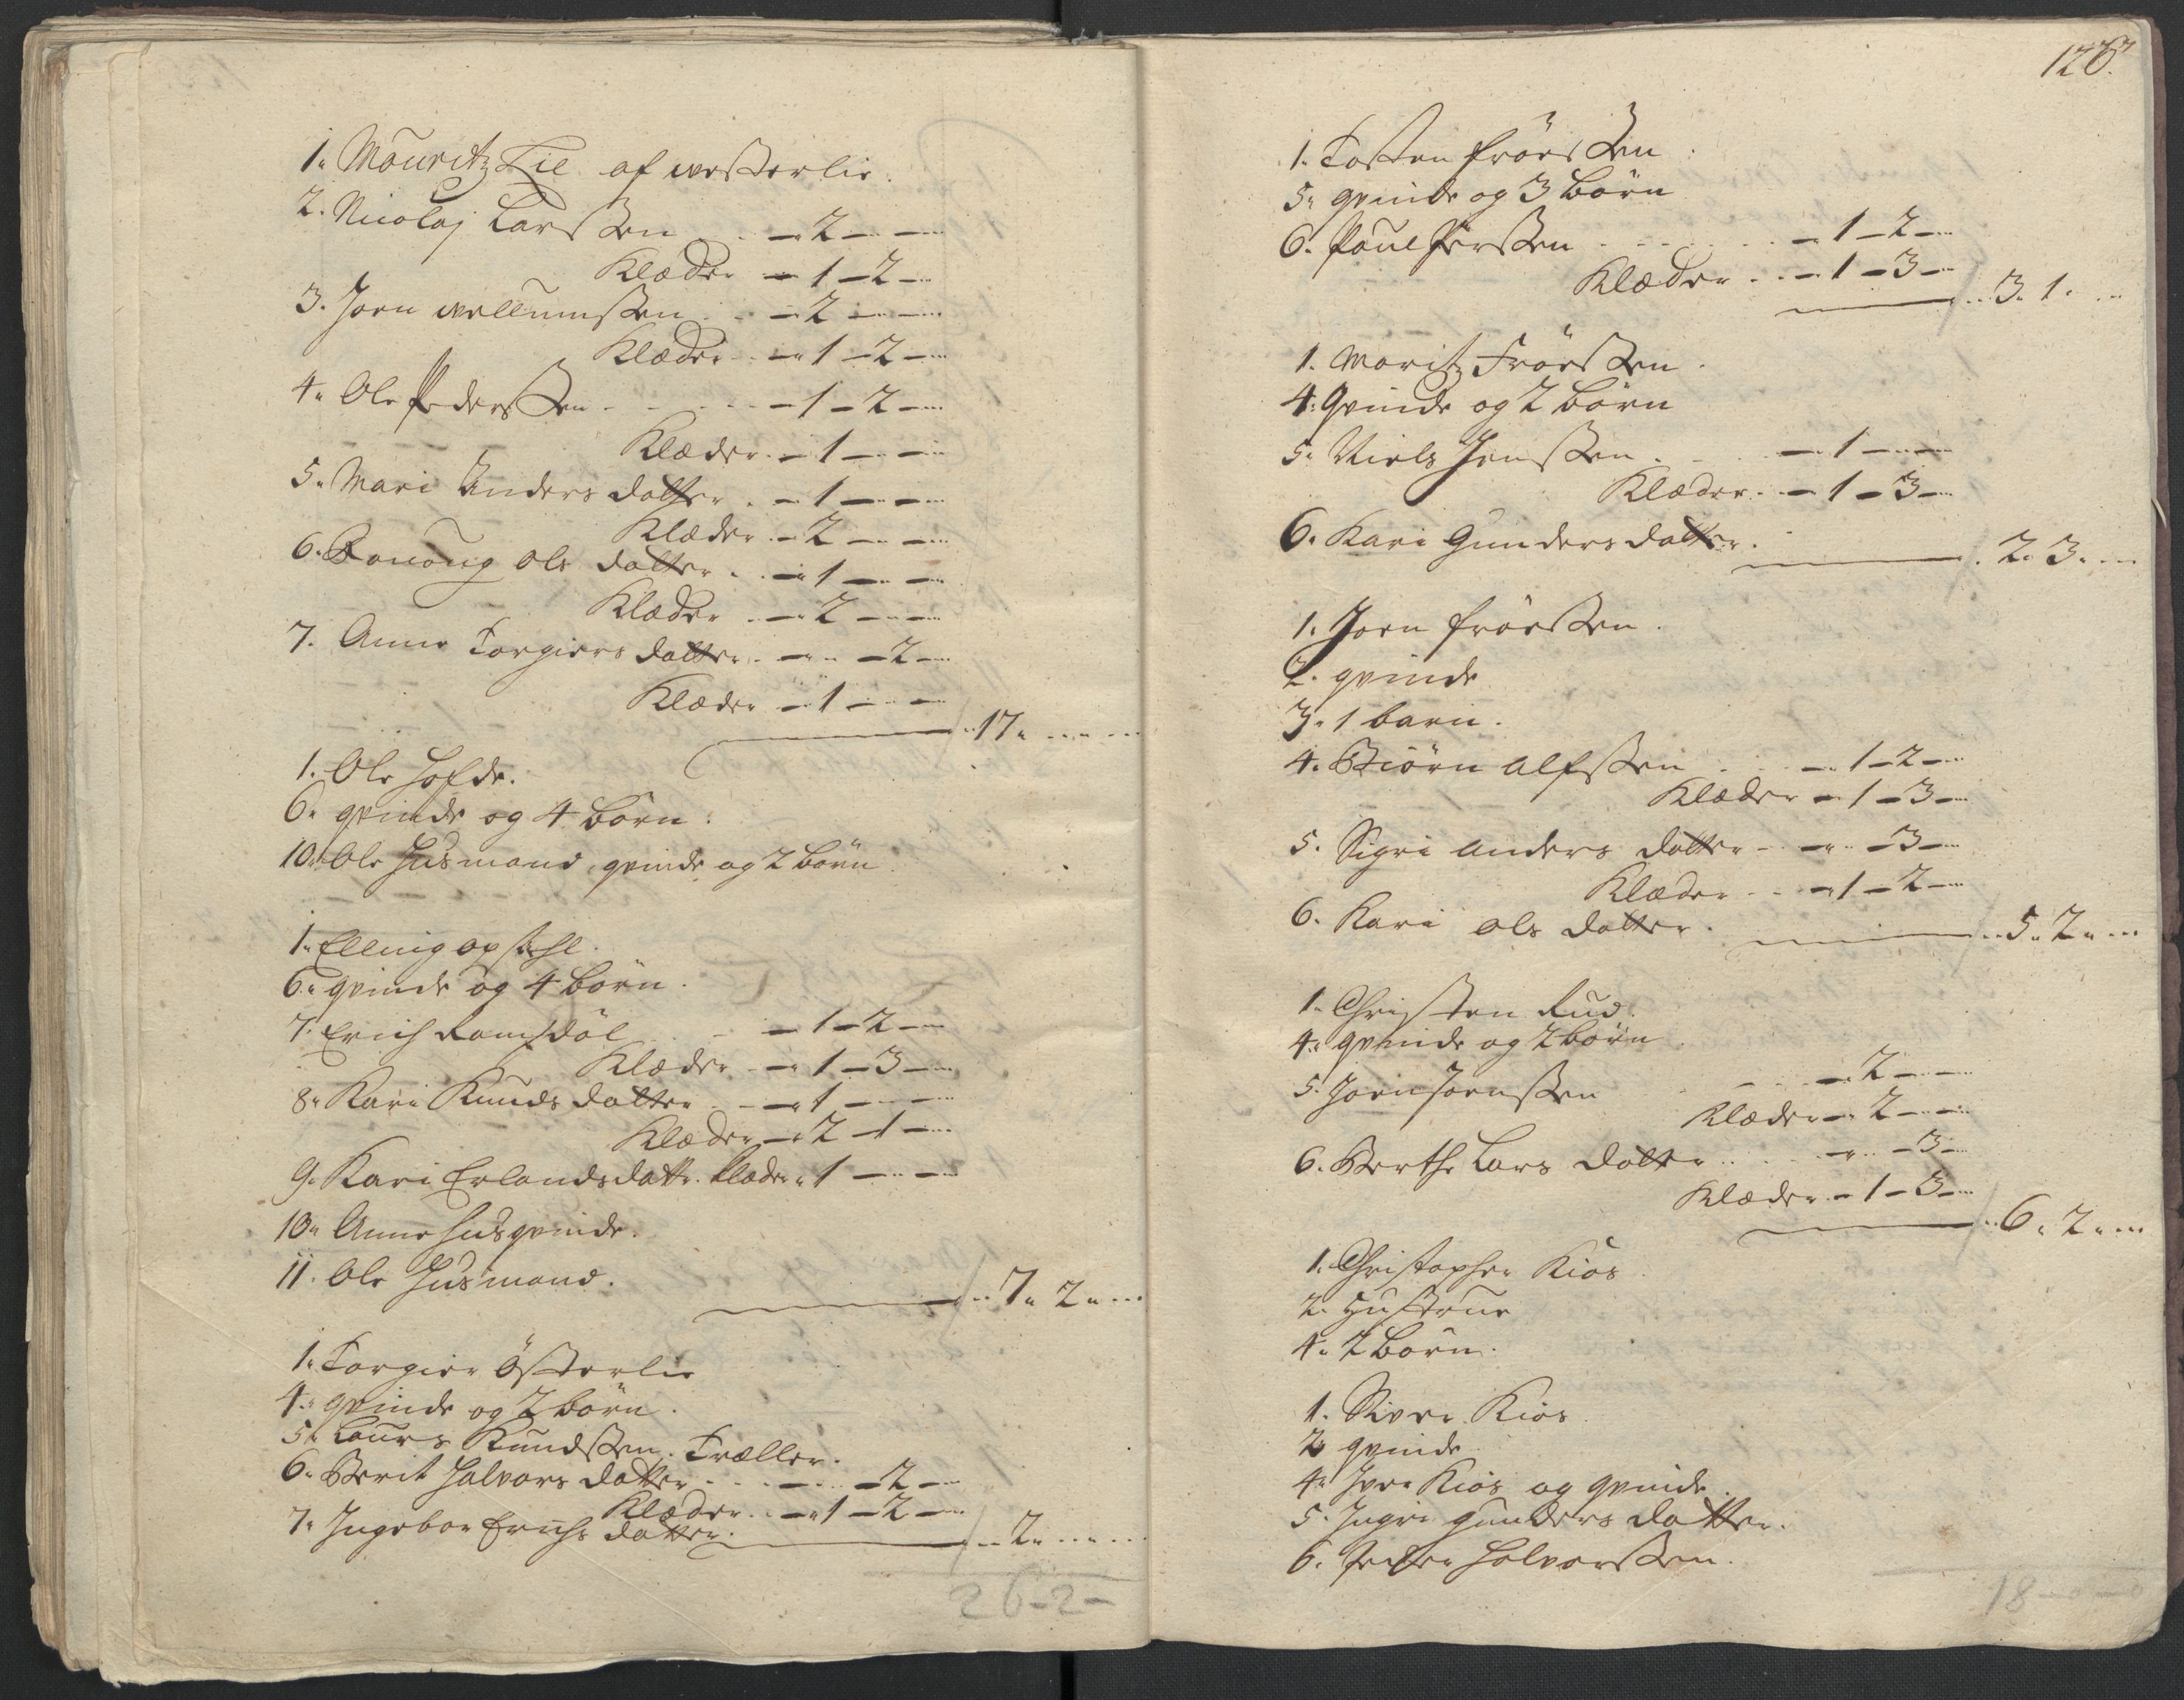 1. Mouritz Lie af Westerlie.
2. Nicolaj Larssen - 2 - -
Klæder - 1 - 2 -
3. Joen Wellumssen - 2 - -
Klæder - 1 - 2 -
4. Ole Pederssen - 1 - 2 -
Klæder - 1 - -
5. Mari Anders datter - 1 - -
Klæder - 2 - -
6. Ronoug Ols datter - 1 - -
Klæder - 2 - -
7. Anne Torgiers datter - - 2 -
Klæder - 1 - -
17.
1. Ole Hofde.
6. qvinde og 4 börn.
10. Ole Husmand, qvinde og 2 börn
1. Elling opsahl.
6. qvinde og 4 börn.
7. Erich Ramsdöl - 1 - 2 -
Klæder - 1 - 3 -
8. Kari Knuds datter - 1 - -
Klæder - 2 - 1 -
9. Kari Erlandsdattr. klæder 1 - -
10. Anne husqvinde.
11. Ole Husmand.
7. 2.
1. Torgier Österlie
4. qvinde og 2 börn.
5. Lours Knudssen. Træller.
6. Berit Halvors datter - - 2 -
Klæder - 1 - 2 -
7. Ingebor Erichs datter.
2.
26-2-
126.
1. Tosten Fröessen.
5. qvinde og 3 börn
6. Poul Perssen - 1 - 2 -
Klæder - 1 - 3 -
3. 1.
1. Moritz Fröessen.
4. Qvinde og 2 börn
5. Niels Jenssen - 1 - -
Klæder - 1 - 3 -
6. Kari Gunders datter.
2. 3.
1. Joen Fröessen.
2. qvinde
3. 1 barn.
4. Biörn Alfssen - 1 - 2 -
Klæder - 1 - 3 -
5. Sigri Anders datter - - 3 -
Klæder - 1 - 2 -
6. Kari Ols datter.
5. 2.
1. Christen Rud.
4. qvinde og 2 börn
5. Joen Joenssen - 2 - -
Klæder - 2 - -
6. Berthe Lars datter - - 3 -
Klæder - 1 - 3 -
6. 2.
1. Christopher Kiös
2. Hustrue
4. 2 börn.
1. Siver Kiös
2 qvinde
4. Iver Kiös og qvinde.
5. Ingri gunders datter.
6. Peder Halvorssen.
18-0-0